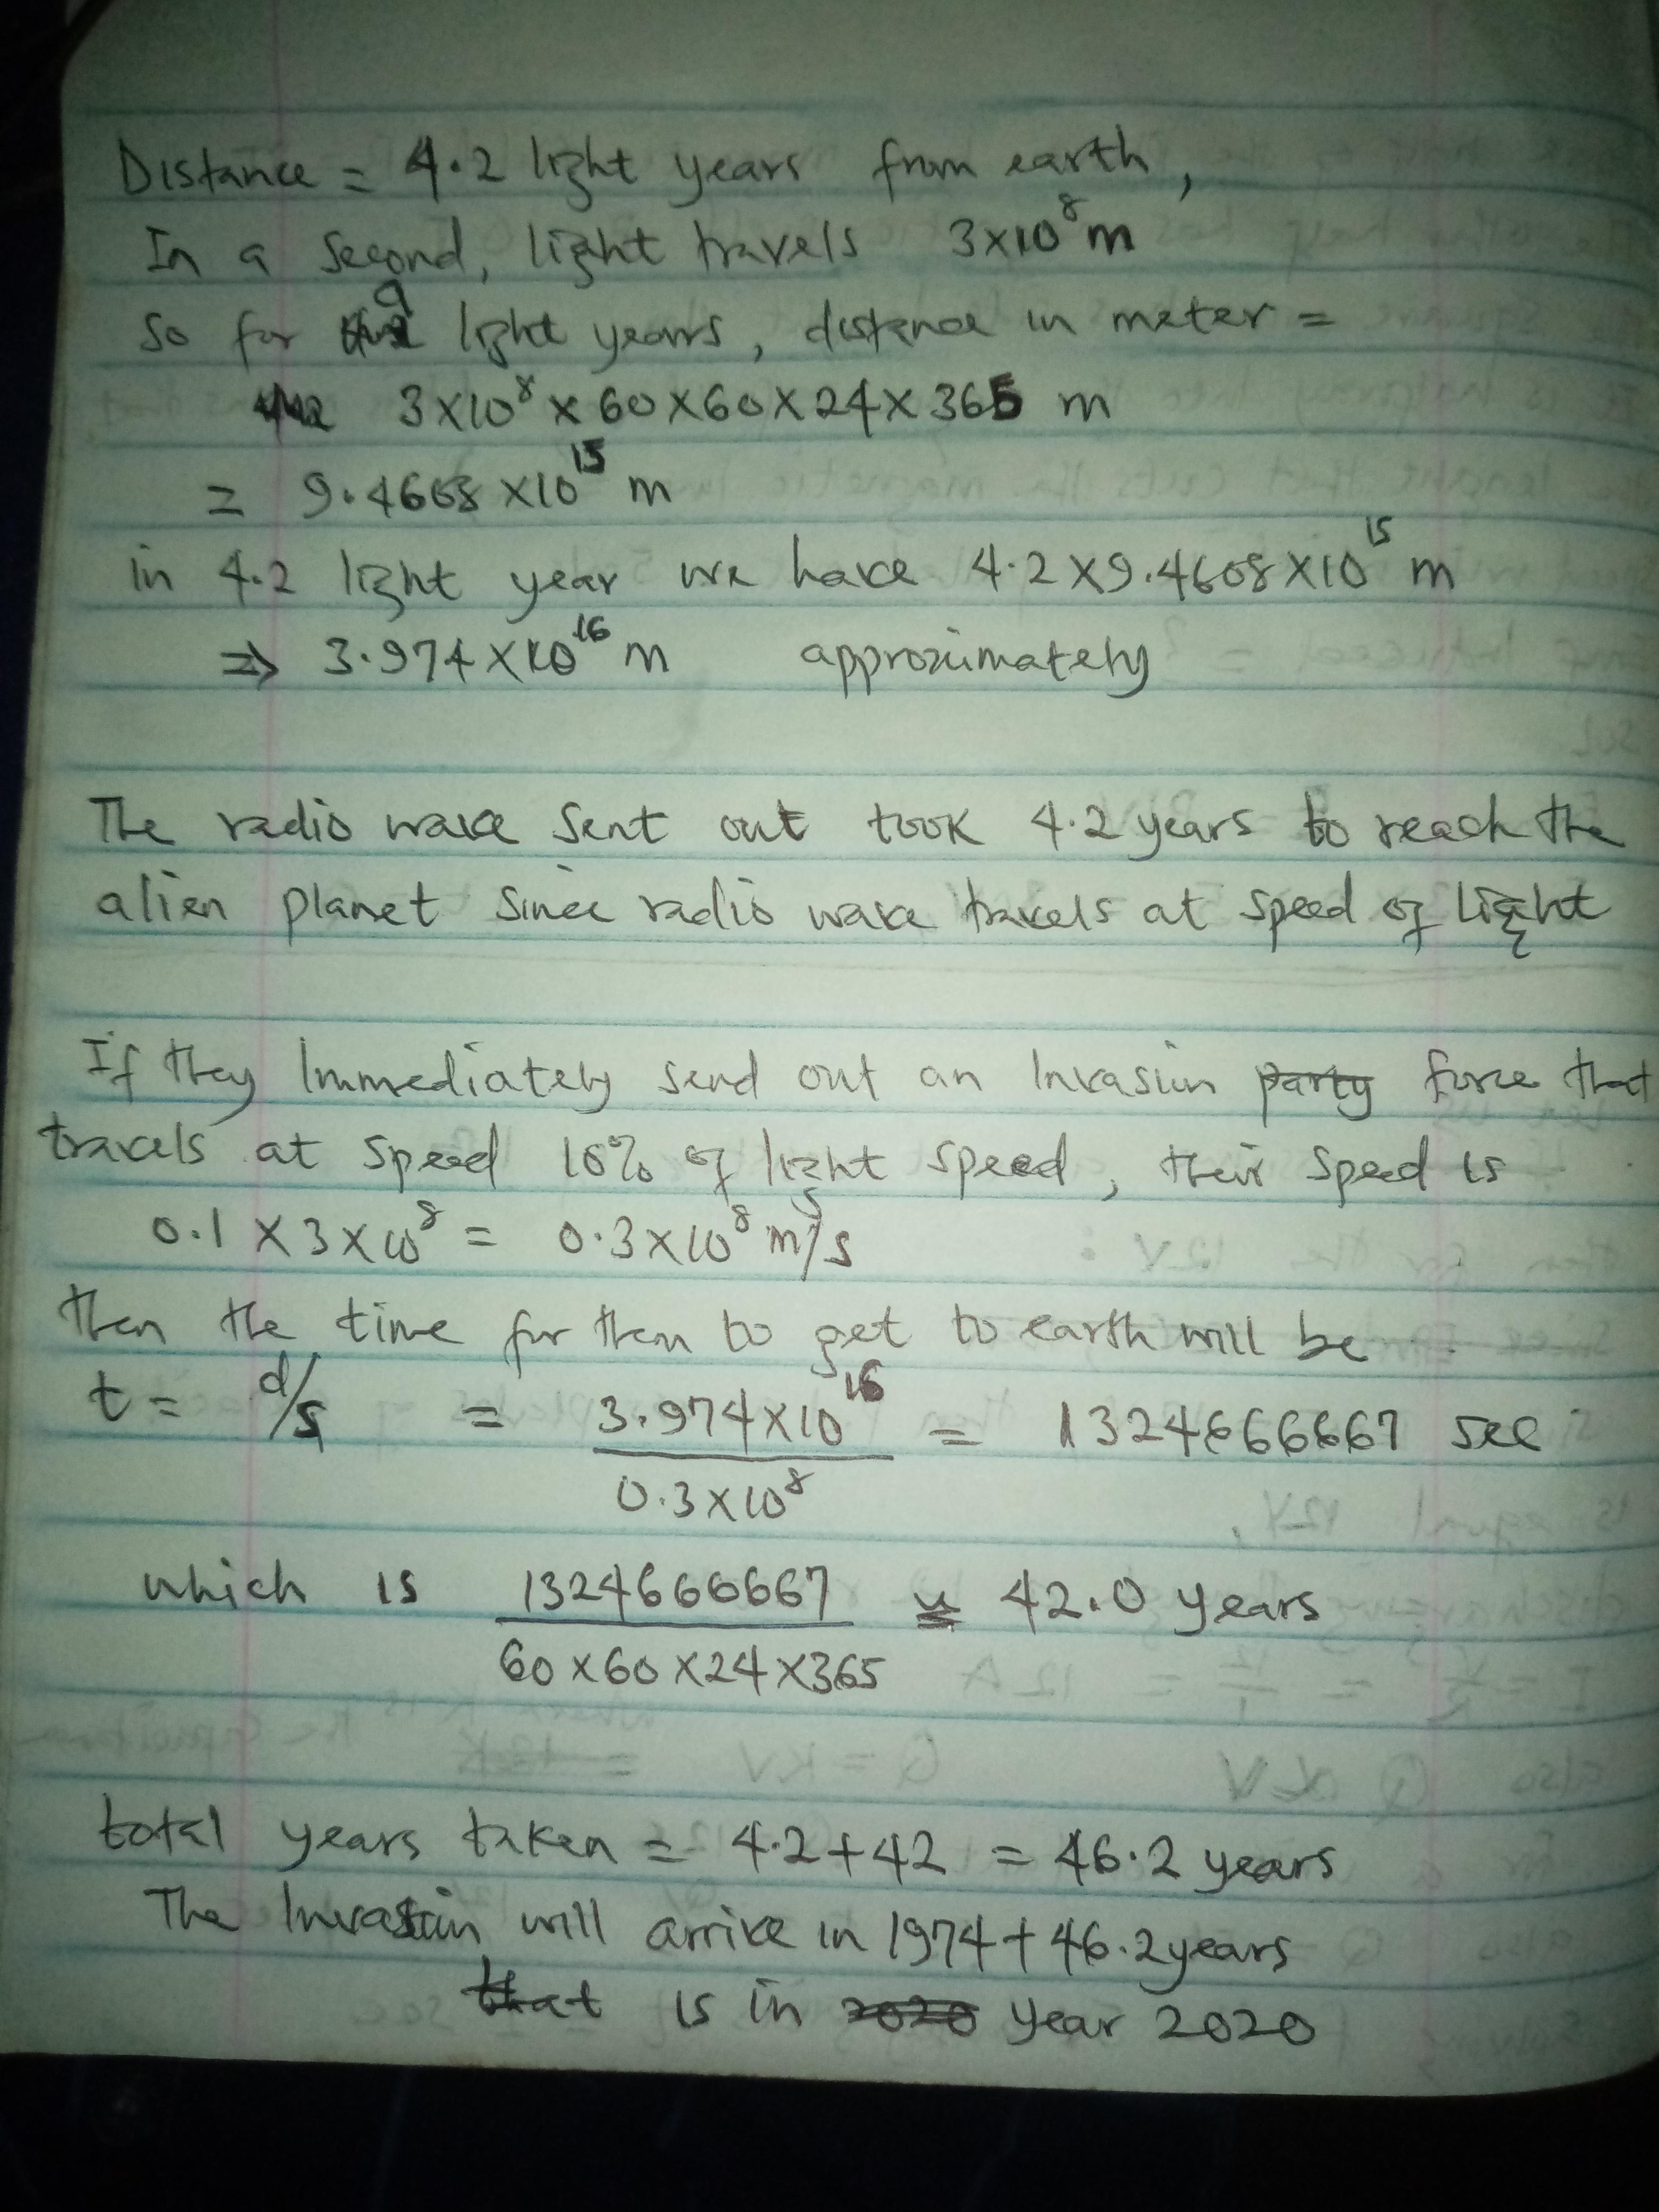 Distance = 4.2 light years from earth,
In a second, light travels 3×10⁸m
So for a light years, distance in meter =
3×10⁸ × 60×60×24×365 m
= 9.4608 ×10¹⁵ m
in 4.2 light year we have 4.2×9.4608×10¹⁵ m
⇒ 3.974×10¹⁶ m approximately
The radio wave sent out took 4.2 years to reach the
alien planet since radio wave travels at speed of light
If they Immediately send out an Invasion party force that
travels at speed 10% of light speed, their speed is
0.1 × 3×10⁸ = 0.3×10⁸ m/s
then the time for them to get to earth will be
t = d/s = 3.974×10¹⁶ / 0.3×10⁸ = 1324666667 sec
which is 1324666667 / 60×60×24×365 ≚ 42.0 years
total years taken = 4.2+42 = 46.2 years
The Invasion will arrive in 1974+46.2years
that is in 2020 year 2020